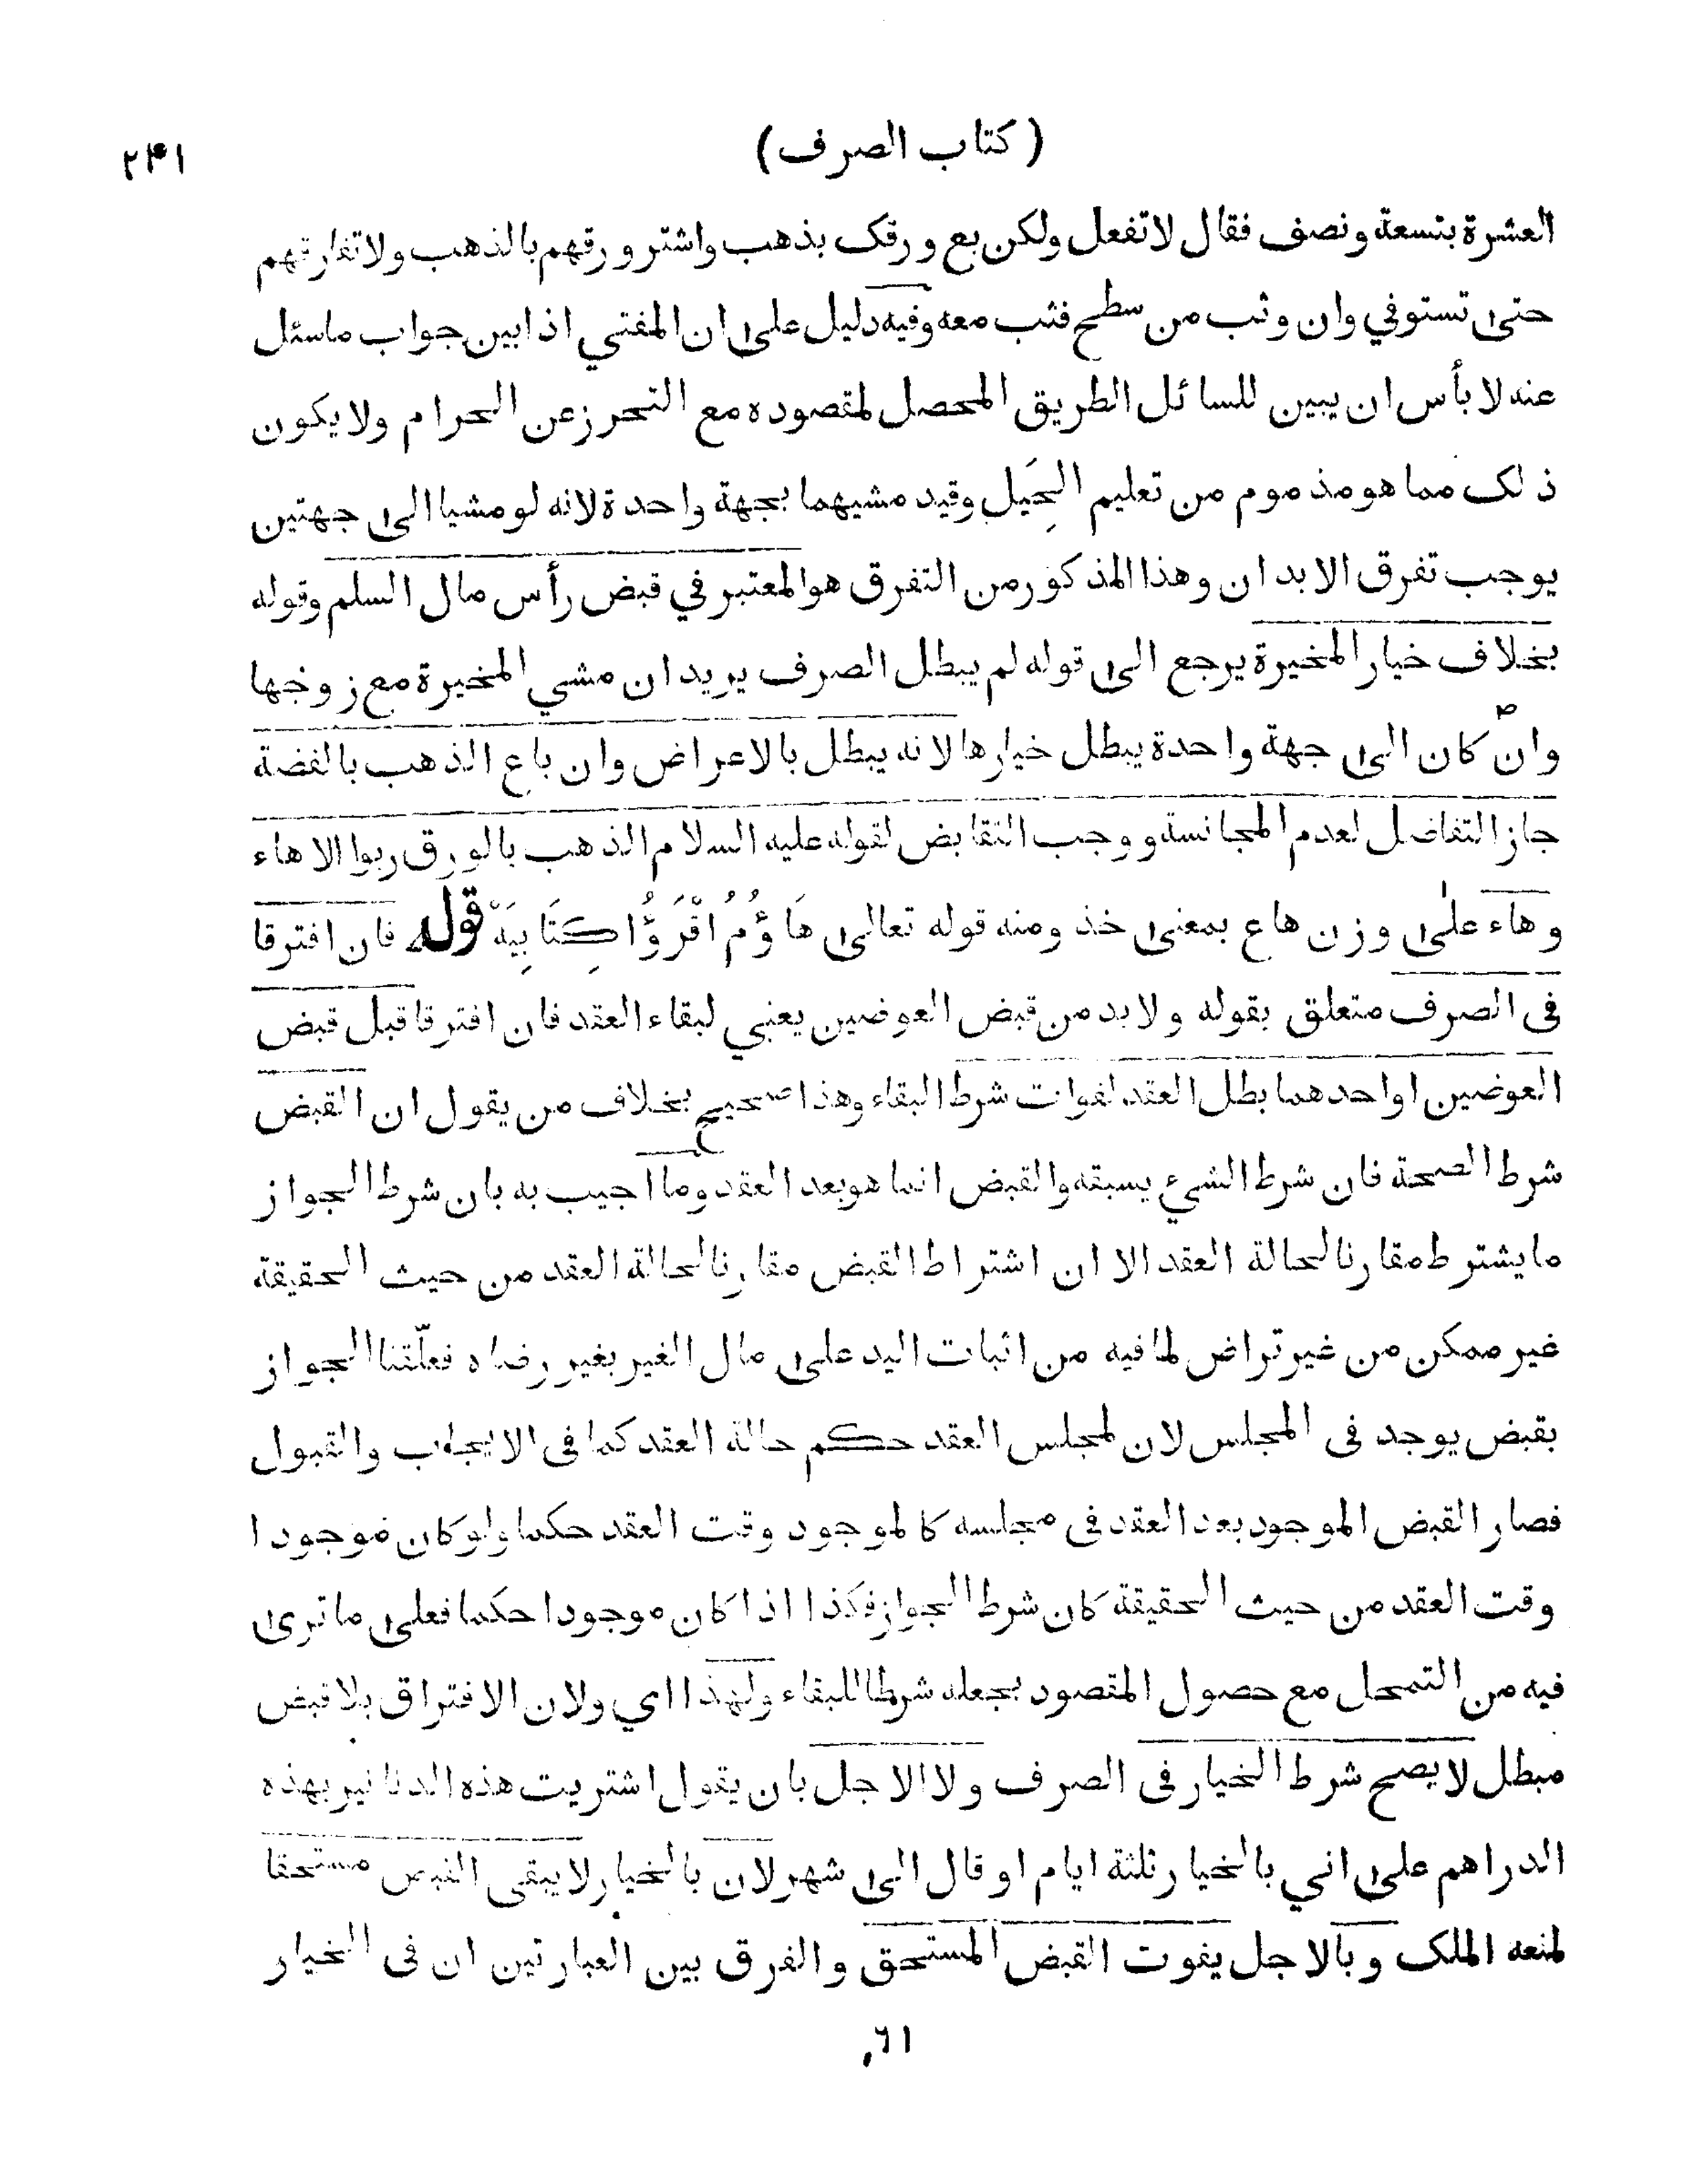 ( كتاب الصرف )
۲۴۱
العشرة بتسعة ونصف فقال لا تفعل ولكن بع ورقك بذهب واشتر ورقهم بالذهب ولا تفارقهم
حتى تستوفي وان وثب من سطح فثب معه وفيه دليل على ان المفتي اذا بين جواب ما سئل
عنه لا بأس ان يبين للسائل الطريق المحصل لمقصوده مع التحرز عن الحرام ولا يكون
ذلك مما هو مذموم من تعليم الحِيَل وقيد مشيهما بجهة واحدة لانه لو مشيا الى جهتين
يوجب تفرق الابدان وهذا المذكور من التفرق هو المعتبر في قبض رأس مال السلم وقوله
بخلاف خيار المخيرة يرجع الى قوله لم يبطل الصرف يريد ان مشي المخيرة مع زوجها
وان كان الى جهة واحدة يبطل خيارها لانه يبطل بالاعراض وان باع الذهب بالفضة
جاز التفاضل لعدم المجانسة ووجب التقابض لقوله عليه السلام الذهب بالورق ربوا الا هاء
وهاء على وزن هاع بمعنى خذ ومنه قوله تعالى هَاؤُمُ اقْرَؤُا كِتَابِيَهْ قوله فان افترقا
فى الصرف متعلق بقوله ولا بد من قبض العوضين يعني لبقاء العقد فان افترقا قبل قبض
العوضين او احدهما بطل العقد لفوات شرط البقاء وهذا صحيح بخلاف من يقول ان القبض
شرط الصحة فان شرط الشيء يسبقه والقبض انما هو بعد العقد وما اجيب به بان شرط الجواز
ما يشترط مقارنا لحالة العقد الا ان اشتراط القبض مقارنا لحالة العقد من حيث الحقيقة
غير ممكن من غير تراض لما فيه من اثبات اليد على مال الغير بغير رضاه فعلّقنا الجواز
بقبض يوجد فى المجلس لان لمجلس العقد حكم حالة العقد كما فى الايجاب والقبول
فصار القبض الموجود بعد العقد فى مجلسه كالموجود وقت العقد حكما ولو كان موجودا
وقت العقد من حيث الحقيقة كان شرط الجواز فكذا اذا كان موجودا حكما فعلى ما ترى
فيه من التمحل مع حصول المقصود بجعله شرطا للبقاء ولهذا اي ولان الافتراق بلا قبض
مبطل لا يصح شرط الخيار فى الصرف ولا الاجل بان يقول اشتريت هذه الدنانير بهذه
الدراهم على اني بالخيار ثلثة ايام او قال الى شهر لان بالخيار لا يبقى القبض مستحقا
لمنعه الملك وبالاجل يفوت القبض المستحق والفرق بين العبارتين ان فى الخيار
٦١